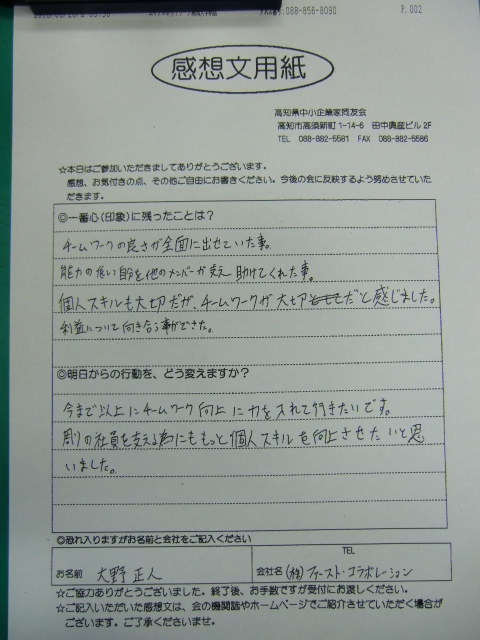 FAX番号:088-856-8090 P.002
感想文用紙
高知県中小企業家同友会
高知市高須新町1-14-6 田中興産ビル2F
TEL 088-882-5581 FAX 088-882-5586
☆本日はご参加いただきましてありがとうございます。
感想、お気付きの点、その他ご自由にお書きください。今後の会に反映するよう努めさせていた
だきます。
◎一番心(印象)に残ったことは?
チームワークの良さが全面に出せていた事。
能力の低い自分を他のメンバーが支え助けてくれた事。
個人スキルも大切だが、チームワークが大切だと感じました。
利益について向き合う事ができた。
◎明日からの行動を、どう変えますか?
今まで以上にチームワーク向上に力を入れて行きたいです。
周りの社員を支える為にももっと個人スキルを向上させたいと思
いました。
◎恐れ入りますがお名前と会社をご記入ください
TEL
お名前 大野 正人 会社名 (株)ファースト・コラボレーション
☆ご協力ありがとうございました。終了後、お手数ですが受付にお渡しください。
☆ご記入いただいた感想文は、会の機関誌やホームページでご紹介させていただく場合が
ございます。ご了承くださいませ。